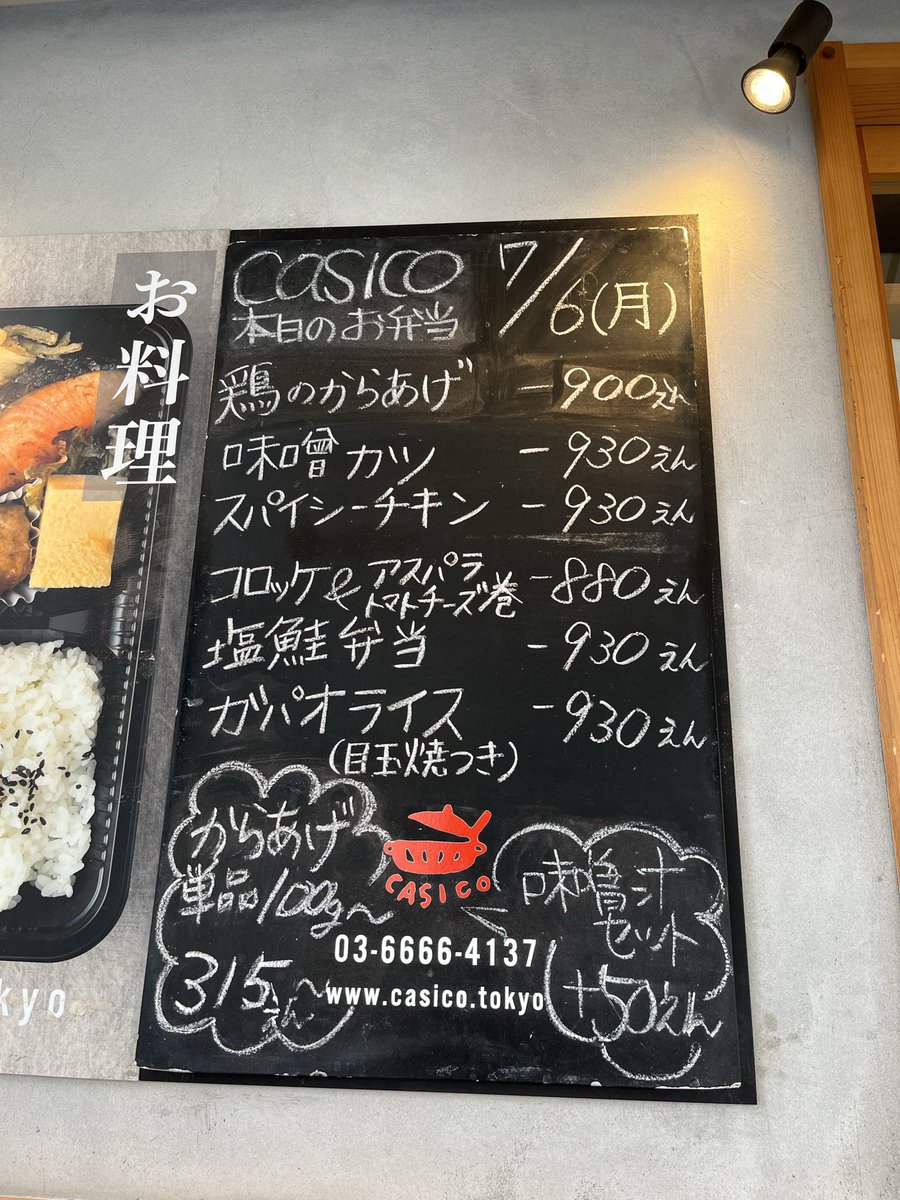 お料理
kyo
CASICO 7/6(月)
本日のお弁当
鶏のからあげ -900えん
味噌カツ -930えん
スパイシーチキン -930えん
コロッケ&アスパラトマトチーズ巻 -880えん
塩鮭弁当 -930えん
ガパオライス -930えん
(目玉焼つき)
からあげ
単品100g〜
315えん〜
CASICO
味噌汁
セット
+50えん
03-6666-4137
www.casico.tokyo